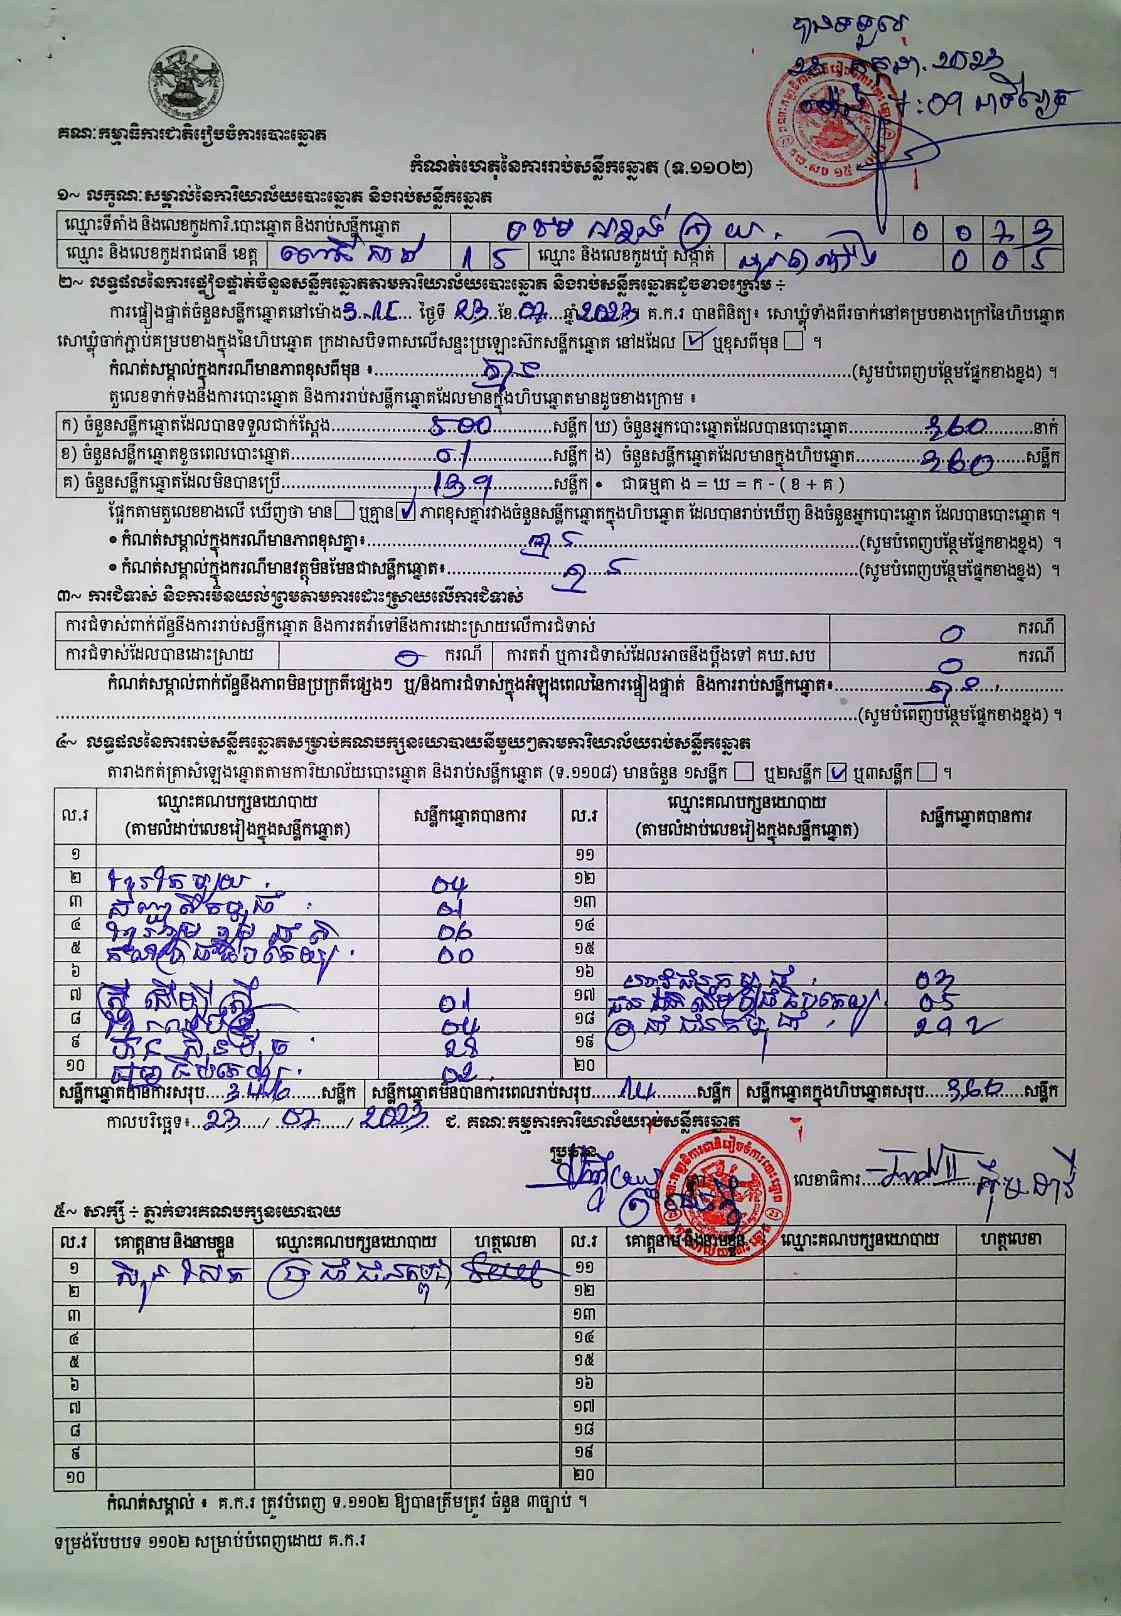 បានទទួល
គណៈកម្មាធិការជាតិរៀបចំការបោះឆ្នោត
កំណត់ហេតុនៃការរាប់សន្លឹកឆ្នោត (ទ.១១០២)
១~ លក្ខណៈសម្គាល់នៃការិយាល័យបោះឆ្នោត និងរាប់សន្លឹកឆ្នោត
ឈ្មោះទីតាំង និងលេខកូដការិ.បោះឆ្នោត និងរាប់សន្លឹកឆ្នោត 0 0 7 3
ឈ្មោះ និងលេខកូដរាជធានី ខេត្ត ពោធិ៍សាត់ 1 5 ឈ្មោះ និងលេខកូដឃុំ សង្កាត់ 0 0 5
២~ លទ្ធផលនៃការផ្ទៀងផ្ទាត់ចំនួនសន្លឹកឆ្នោតតាមការិយាល័យបោះឆ្នោត និងរាប់សន្លឹកឆ្នោតដូចខាងក្រោម ÷
ការផ្ទៀងផ្ទាត់ចំនួនសន្លឹកឆ្នោតនៅម៉ោង ថ្ងៃទី 23 ខែ 07 ឆ្នាំ 2023 ។ គ.ក.រ បានពិនិត្យ៖ សោឃ្លុំទាំងពីរចាក់នៅគម្របខាងក្រៅនៃហិបឆ្នោត
សោឃ្លុំចាក់ភ្ជាប់គម្របខាងក្នុងនៃហិបឆ្នោត ក្រដាសបិទពាសលើសន្ទះប្រឡោះស៊ិកសន្លឹកឆ្នោត នៅដដែល ☑ ឬខុសពីមុន ☐ ។
កំណត់សម្គាល់ក្នុងករណីមានភាពខុសពីមុន ៖ គ្មាន (សូមបំពេញបន្ថែមផ្នែកខាងខ្នង) ។
តួលេខទាក់ទងនឹងការបោះឆ្នោត និងការរាប់សន្លឹកឆ្នោតដែលមានក្នុងហិបឆ្នោតមានដូចខាងក្រោម ៖
ក) ចំនួនសន្លឹកឆ្នោតដែលបានទទួលជាក់ស្តែង 500 សន្លឹក ឃ) ចំនួនអ្នកបោះឆ្នោតដែលបានបោះឆ្នោត 360 នាក់
ខ) ចំនួនសន្លឹកឆ្នោតខូចពេលបោះឆ្នោត 01 សន្លឹក ង) ចំនួនសន្លឹកឆ្នោតដែលមានក្នុងហិបឆ្នោត 360 សន្លឹក
គ) ចំនួនសន្លឹកឆ្នោតដែលមិនបានប្រើ 139 សន្លឹក • ជាធម្មតា ង = ឃ = ក - ( ខ + គ )
ផ្អែកតាមតួលេខខាងលើ ឃើញថា មាន ☐ ឬគ្មាន ☑ ភាពខុសគ្នារវាងចំនួនសន្លឹកឆ្នោតក្នុងហិបឆ្នោត ដែលបានរាប់ឃើញ និងចំនួនអ្នកបោះឆ្នោត ដែលបានបោះឆ្នោត ។
• កំណត់សម្គាល់ក្នុងករណីមានភាពខុសគ្នា៖ គ្មាន (សូមបំពេញបន្ថែមផ្នែកខាងខ្នង) ។
• កំណត់សម្គាល់ក្នុងករណីមានវត្ថុមិនមែនជាសន្លឹកឆ្នោត៖ គ្មាន (សូមបំពេញបន្ថែមផ្នែកខាងខ្នង) ។
៣~ ការជំទាស់ និងការមិនយល់ព្រមតាមការដោះស្រាយលើការជំទាស់
ការជំទាស់ពាក់ព័ន្ធនឹងការរាប់សន្លឹកឆ្នោត និងការតវ៉ាទៅនឹងការដោះស្រាយលើការជំទាស់ 0 ករណី
ការជំទាស់ដែលបានដោះស្រាយ 0 ករណី ការតវ៉ា ឬការជំទាស់ដែលអាចនឹងប្តឹងទៅ គឃ.សប 0 ករណី
កំណត់សម្គាល់ពាក់ព័ន្ធនឹងភាពមិនប្រក្រតីផ្សេងៗ ឬ/និងការជំទាស់ក្នុងអំឡុងពេលនៃការផ្ទៀងផ្ទាត់ និងការរាប់សន្លឹកឆ្នោត៖ គ្មាន
(សូមបំពេញបន្ថែមផ្នែកខាងខ្នង) ។
៤~ លទ្ធផលនៃការរាប់សន្លឹកឆ្នោតសម្រាប់គណបក្សនយោបាយនីមួយៗតាមការិយាល័យរាប់សន្លឹកឆ្នោត
តារាងកត់ត្រាសំឡេងឆ្នោតតាមការិយាល័យបោះឆ្នោត និងរាប់សន្លឹកឆ្នោត (ទ.១១០៨) មានចំនួន ១សន្លឹក ☐ ឬ២សន្លឹក ☑ ឬ៣សន្លឹក ☐ ។
ល.រ ឈ្មោះគណបក្សនយោបាយ (តាមលំដាប់លេខរៀងក្នុងសន្លឹកឆ្នោត) សន្លឹកឆ្នោតបានការ ល.រ ឈ្មោះគណបក្សនយោបាយ (តាមលំដាប់លេខរៀងក្នុងសន្លឹកឆ្នោត) សន្លឹកឆ្នោតបានការ
១ ១១
២ 04 ១២
៣ 01 ១៣
៤ 06 ១៤
៥ 00 ១៥
៦ ១៦ 03
៧ 01 ១៧ 05
៨ 04 ១៨ ប្រជាជនកម្ពុជា 292
៩ ១៩
១០ 02 ២០
សន្លឹកឆ្នោតបានការសរុប 346 សន្លឹក សន្លឹកឆ្នោតមិនបានការពេលរាប់សរុប 14 សន្លឹក សន្លឹកឆ្នោតក្នុងហិបឆ្នោតសរុប 360 សន្លឹក
កាលបរិច្ឆេទ៖ 23 / 07 / 2023 ជ. គណៈកម្មការការិយាល័យរាប់សន្លឹកឆ្នោត
ប្រធាន លេខាធិការ
៥~ សាក្សី ÷ ភ្នាក់ងារគណបក្សនយោបាយ
ល.រ គោត្តនាម និងនាមខ្លួន ឈ្មោះគណបក្សនយោបាយ ហត្ថលេខា ល.រ គោត្តនាម និងនាមខ្លួន ឈ្មោះគណបក្សនយោបាយ ហត្ថលេខា
១ ប្រជាជនកម្ពុជា ១១
២ ១២
៣ ១៣
៤ ១៤
៥ ១៥
៦ ១៦
៧ ១៧
៨ ១៨
៩ ១៩
១០ ២០
កំណត់សម្គាល់ ៖ គ.ក.រ ត្រូវបំពេញ ទ.១១០២ ឱ្យបានត្រឹមត្រូវ ចំនួន ៣ច្បាប់ ។
ទម្រង់បែបបទ ១១០២ សម្រាប់បំពេញដោយ គ.ក.រ